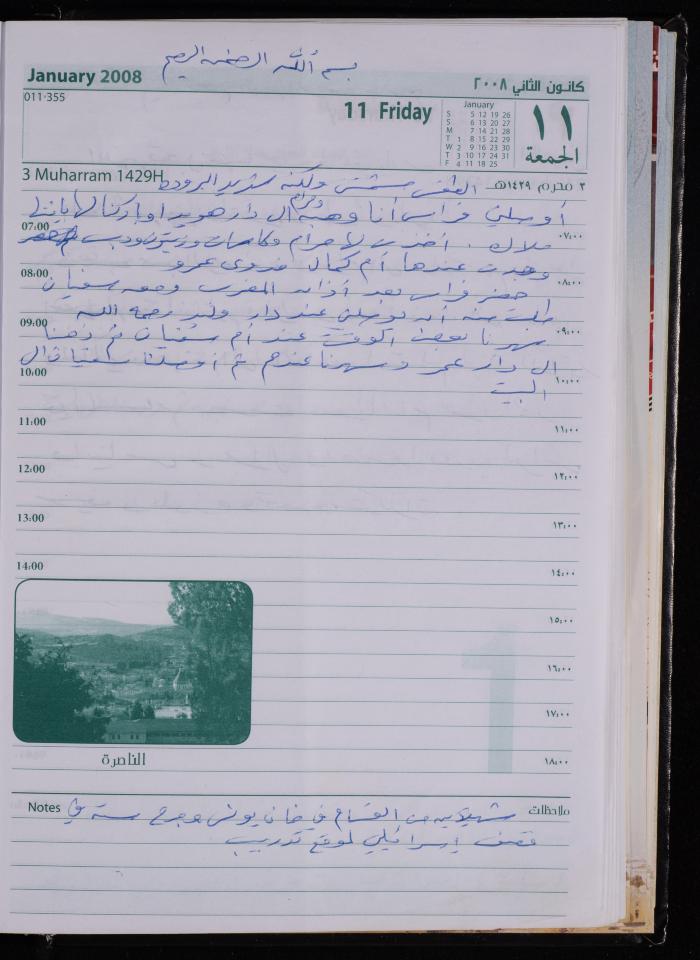 بسم الله الرحمن الرحيم
January 2008
كانون الثاني ٢٠٠٨
011-355
11 Friday
January
S 5 12 19 26
S 6 13 20 27
M 7 14 21 28
T 1 8 15 22 29
W 2 9 16 23 30
T 3 10 17 24 31
F 4 11 18 25
١١
الجمعة
3 Muharram 1429H
٣ محرم ١٤٢٩هـ
الطقس مشمس ولكنه شديد البرودة
أوصلني فراس أنا وهبة ال دار هويدا وباركنا لها
07:00
٠٧:٠٠
ملاك . أخذت لها حرام و وزيتون ودبس
وجدت عندها أم كمال عمرو
08:00
٠٨:٠٠
حضر فراس بعد أذان المغرب ومعه سفيان
طلبت منه أن يوصلني عند دار وليد رحمه الله
09:00
٠٩:٠٠
سهرنا بعض الوقت عند أم سفيان ثم ذهبنا
ال دار عمر وسهرنا عندهم ثم أوصلنا سفيان ال
10:00
١٠:٠٠
البيت
11:00
١١:٠٠
12:00
١٢:٠٠
13:00
١٣:٠٠
14:00
١٤:٠٠
١٥:٠٠
١٦:٠٠
١٧:٠٠
١٨:٠٠
1
الناصرة
Notes
ملاحظات
شهيدين من القسام في خان يونس وجرح ستة في
قصف إسرائيلي لموقع تدريب